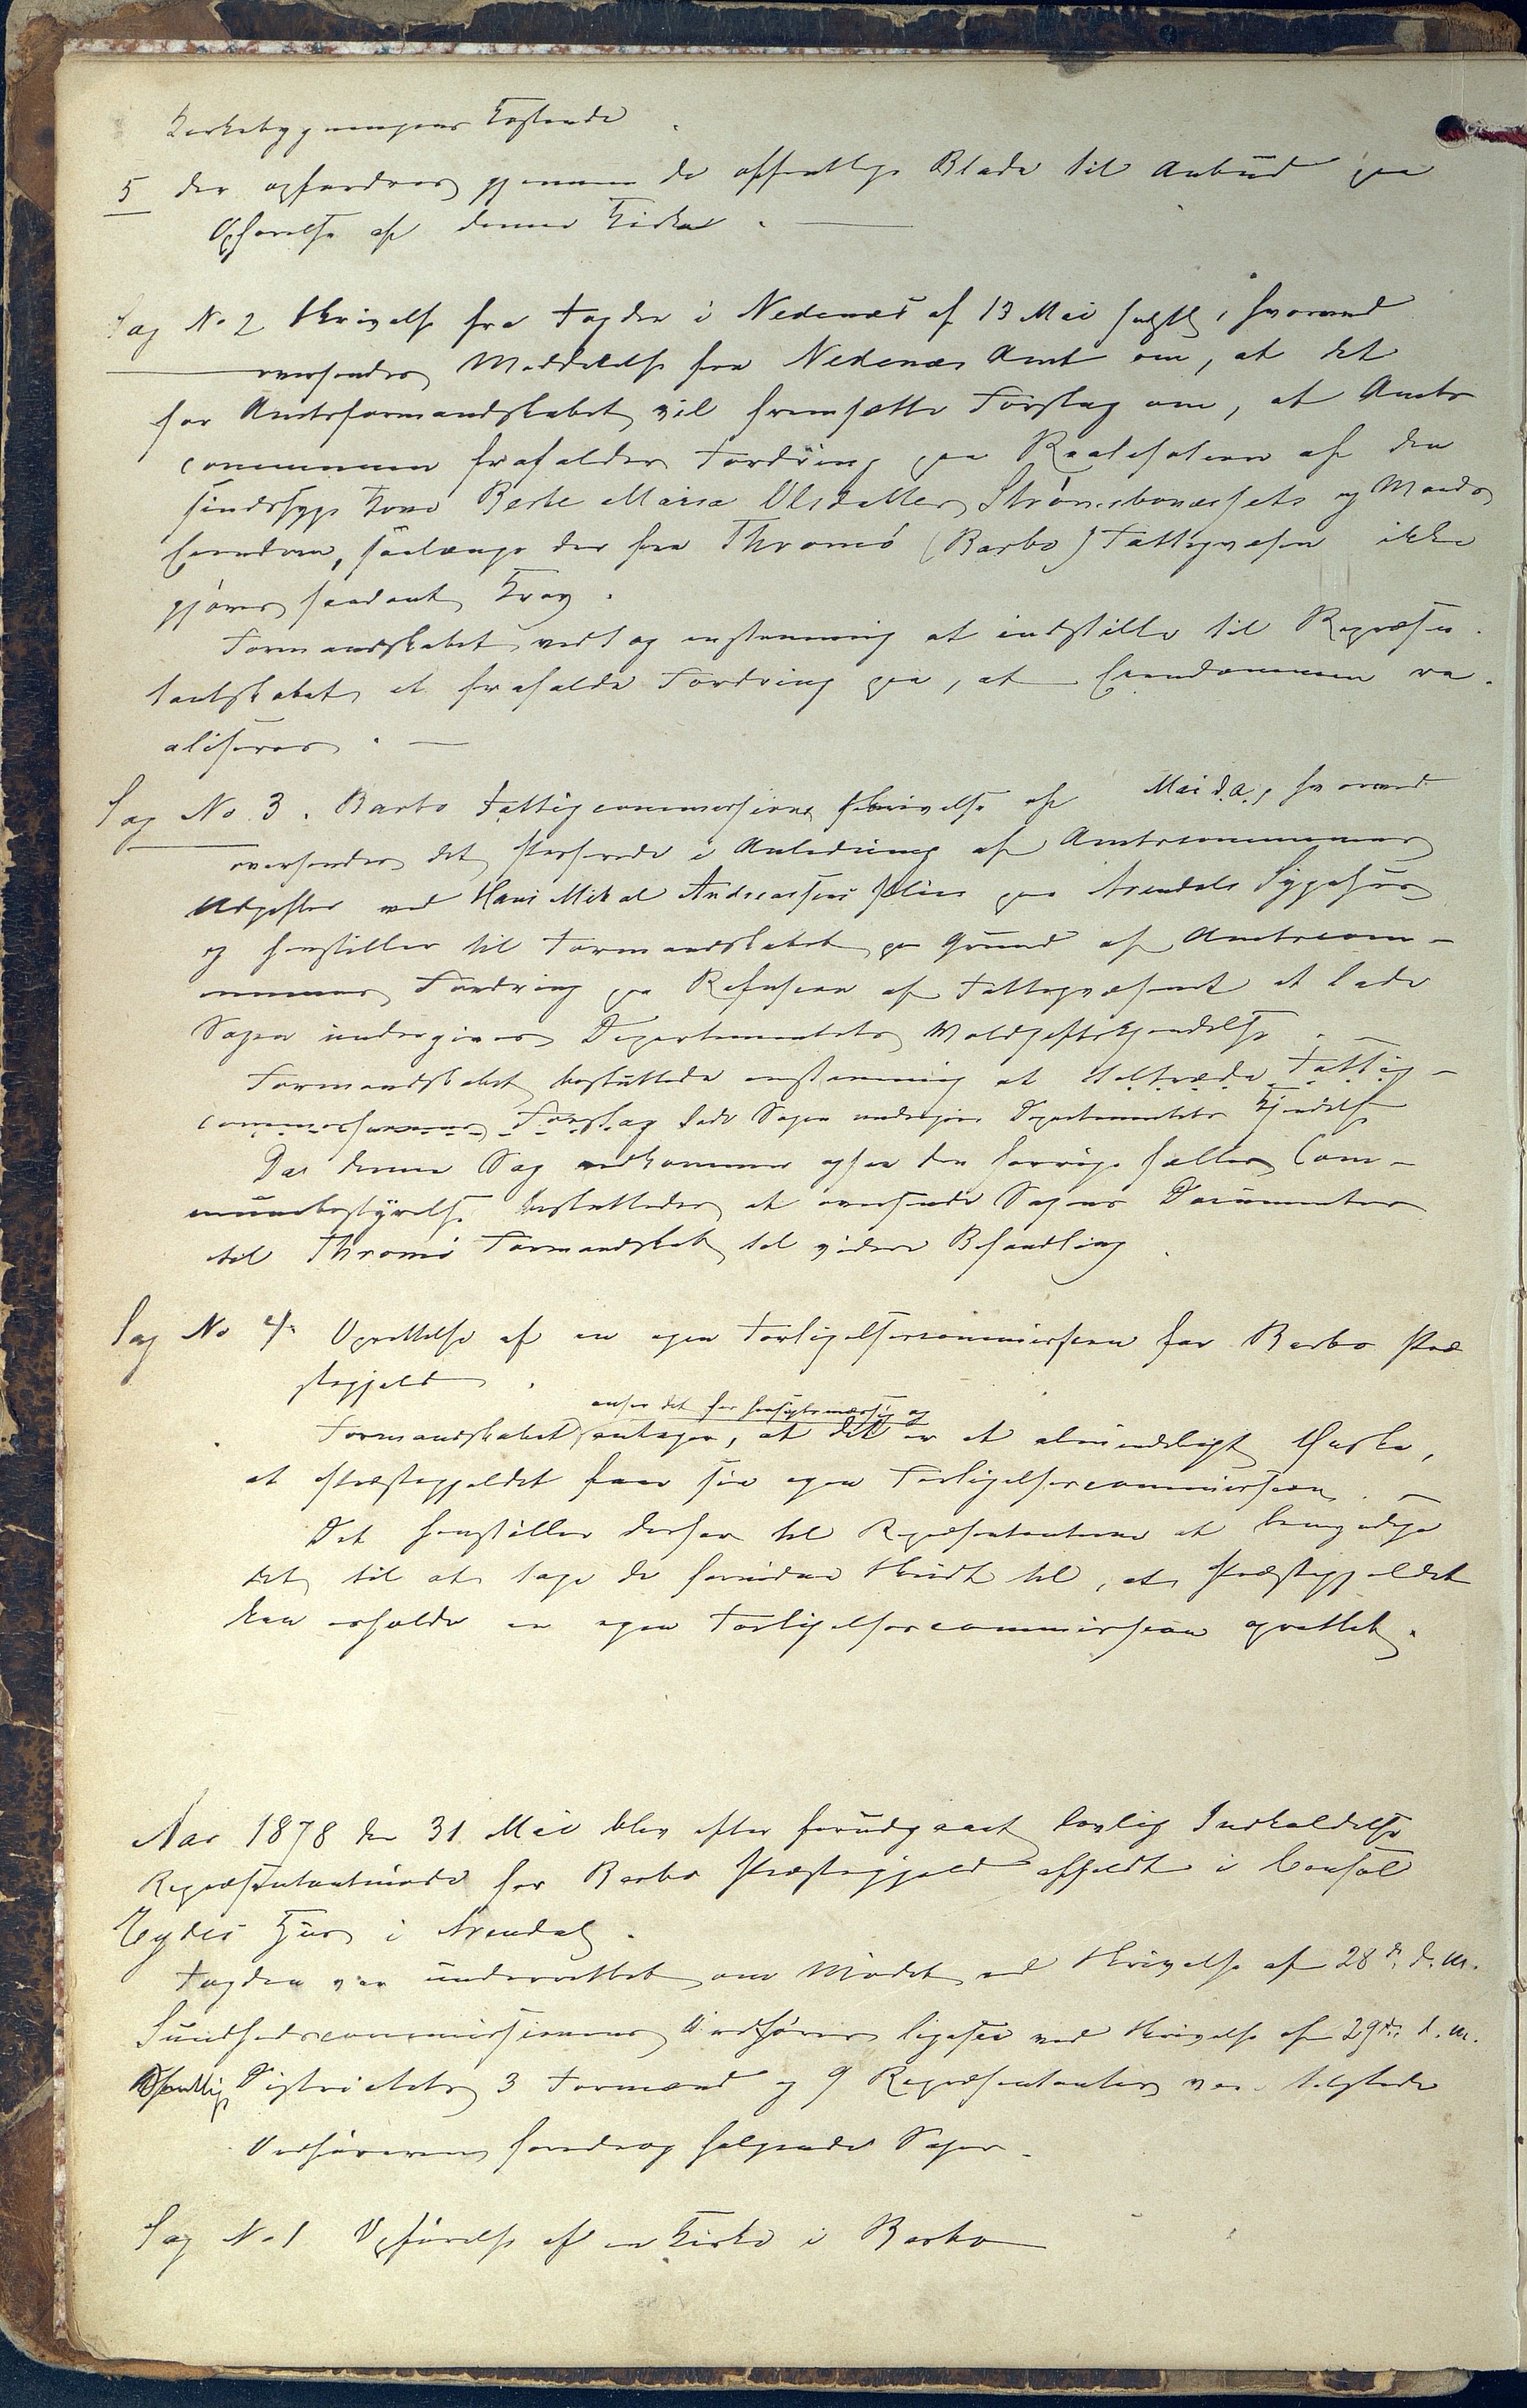 Kirkebygningens Kostende.
5 der opfordres gjennem de offentlige Blade til Anbud paa
Opførelse af denne Kirke. —
Sag No 2 Skrivelse fra Fogden i Nedenæs af 13 Mai , hvorved
oversendes Meddelelse fra Nedenæs Amt om, at det
for Amtsformandskabet vil fremsætte Forslag om, at Amts
communen frafalder Fordring paa Realisation af den
sindssyge Kone Berte Maria Olsdatter Strømsbonæssets og Mands
Eiendom, saalænge der fra Thromø (Barbo) Fattigvæsen ikke
gjøres saadant Krav.
Formandskabet vedtog enstemmig at indstille til Repræsen-
tantskabet at frafalde Fordring paa, at Eiendommen re-
aliseres. —
Sag No 3. Barbo Fattigcommissions Skrivelse af Mai d.A., hvorved
oversendes det passerede i Anledning af Amtscommunens
Udgifter ved Hans Mikal Andreassens Pleie paa Arendals Sygehus
og henstiller til Formandskabet paa Grund af Amtscom-
munens Fordring paa Refusion af Fattigvæsenet at lade
Sagen undergives Departementets Voldgiftskjendelse. —
Formandskabet besluttede enstemmig at tiltræde Fattig-
commissionens Forslag lade Sagen undergives Departementets Kjendelse
Da denne Sag vedkommer ogsaa den forrige fælles Com-
munebestyrelse besluttedes at oversende Sagens Documenter
til Thromø Formandskab til videre Behandling.
Sag No 4. Oprettelse af en egen Forligelsescommission for Barbo Præ
stegjeld.
anser det for hensigtsmæssig og
Formandskabet antager, at det er et almindeligt Ønske,
at Præstegjeldet faar sin egen Forligelsescommission. —
Det henstiller derfor til Repræsentanterne at bemyndige
det til at tage de fornødne Skridt til, at Præstegjeldet
kan erholde en egen Forligelsescommission oprettet.
Aar 1878 den 31 Mai blev efter forudgaaet lovlig Indkaldelse
Repræsentantmøde for Barbo Præstegjeld afholdt i Consul
Eydes Huus i Arendal.
Fogden var underrettet om Mødet ved Skrivelse af 28de d.M.
Sundhedscommissionens Ordfører ligesaa ved Skrivelse af 29de d.M.
Districtets 3 Formænd og 9 Repræsentanter var tilstede
Ordføreren foredrog følgende Sager.
Sag No 1 Opførelse af en Kirke i Barbo